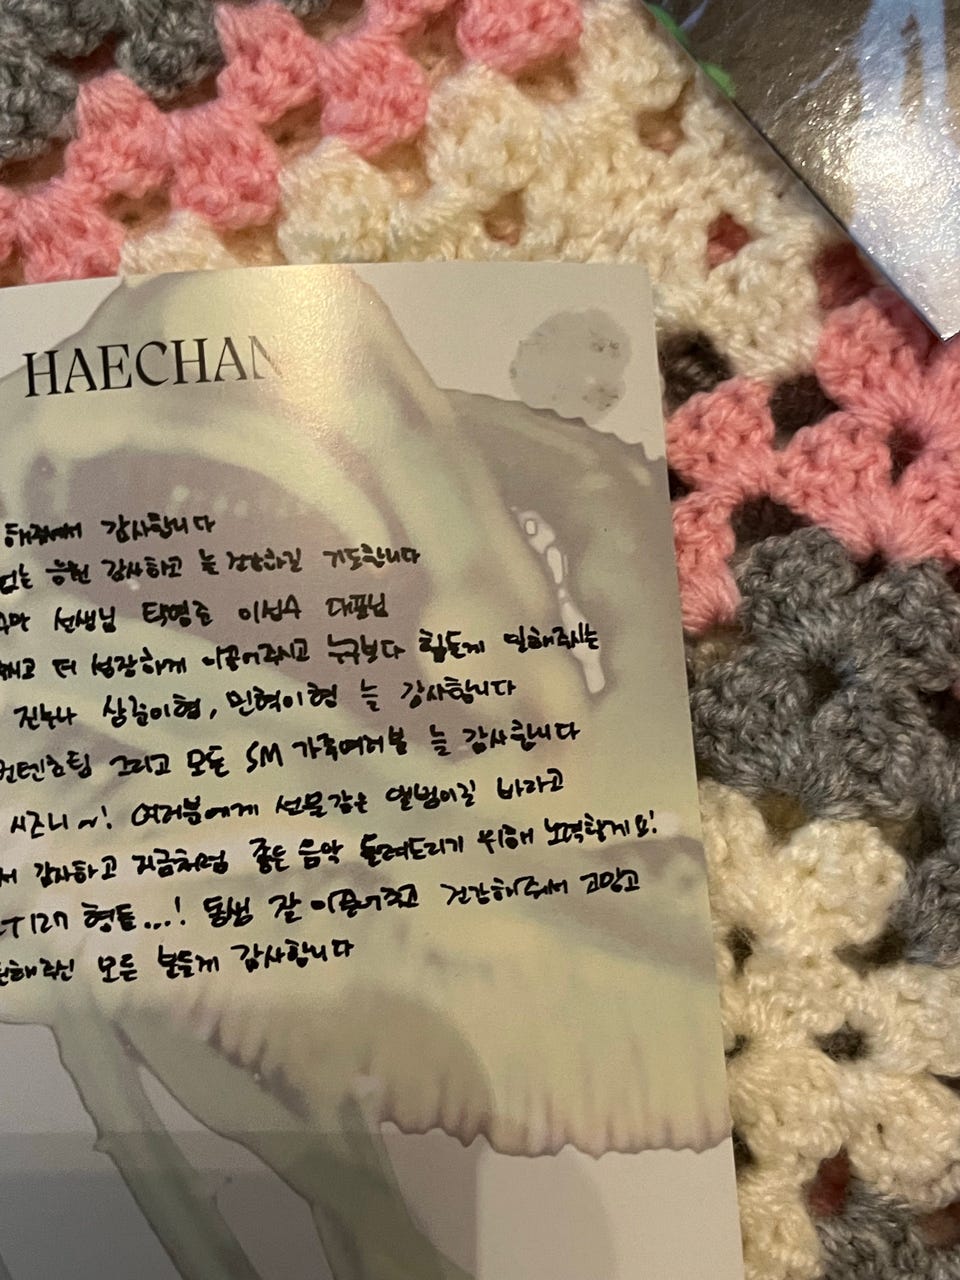 HAECHAN
해줘서 감사합니다
없는 응원 감사하고 늘 건강하길 기도합니다
수만 선생님 탁영준 이성수 대표님
더 성장하게 이끌어주시고 누구보다 힘든게 일해주시는
진누나 삼굼이형, 민혁이형 늘 감사합니다
컨텐츠팀 그리고 모든 SM 가족여러분 늘 감사합니다
시즈니~! 여러분에게 선물같은 앨범이길 바라고
감사하고 지금처럼 좋은 음악 들려드리기 위해 노력할게요!
CT127 형들...! 동생 잘 이끌어주고 건강해줘서 고맙고
원해주신 모든 분들께 감사합니다